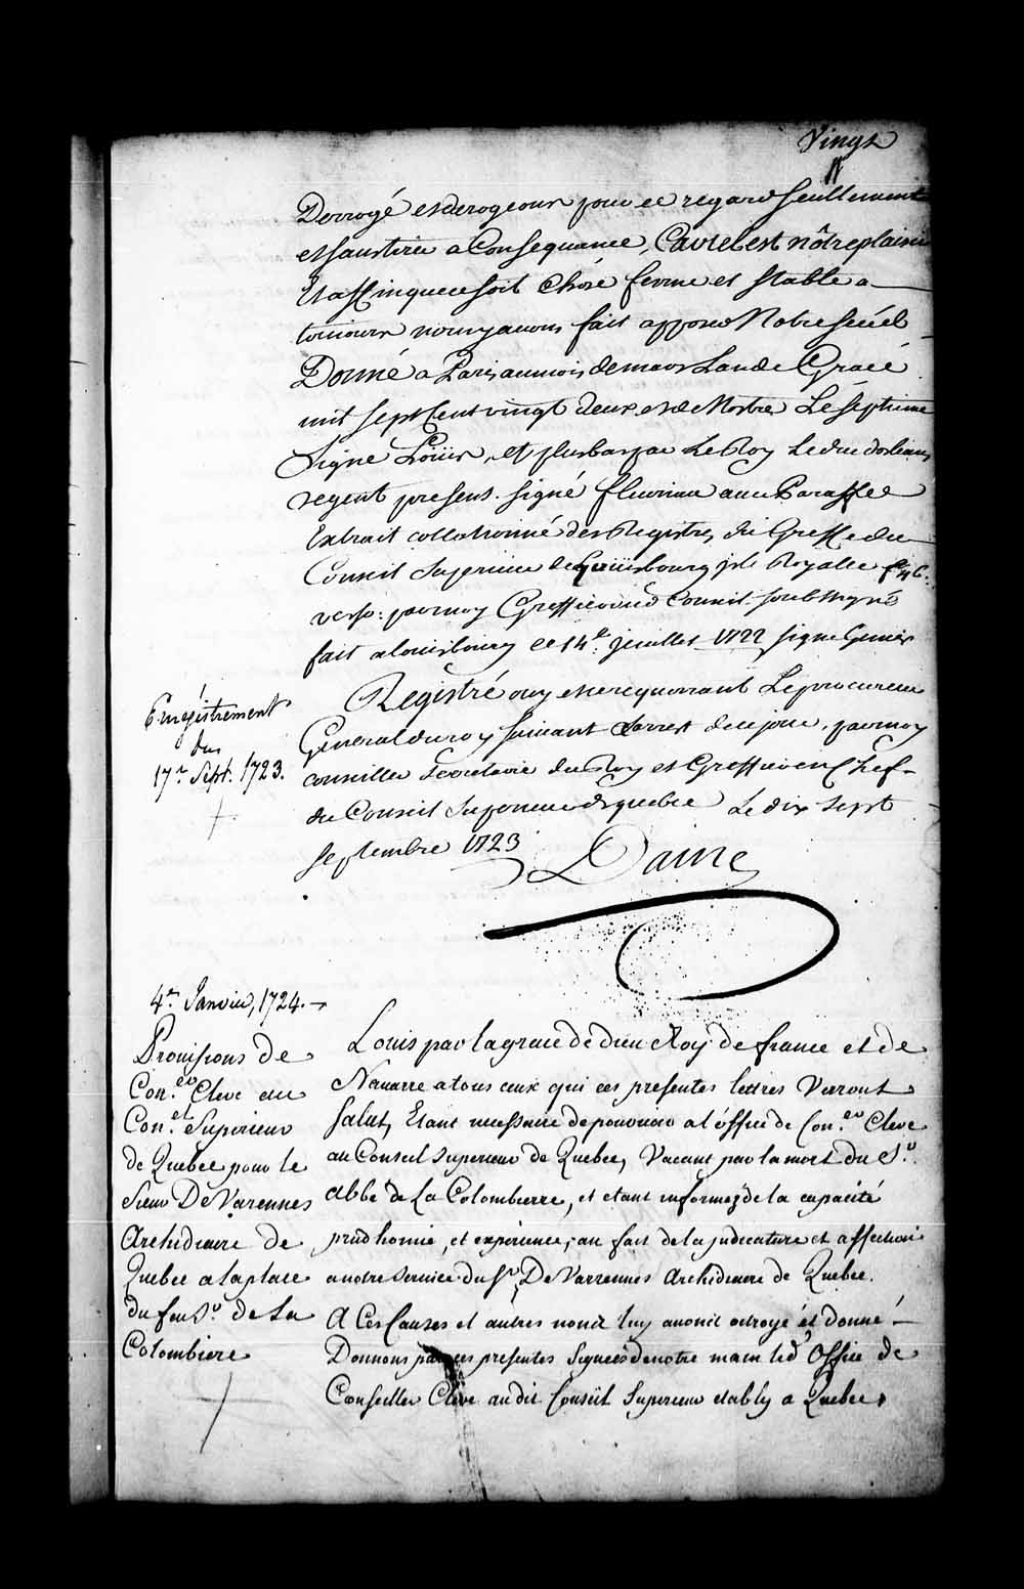 Vingt
Derrogé et derogeons pour ce regard seullement
et sans tirer a Consequance, Car tel est nôtre plaisir
Et affin que ce soit chose ferme et stable a
tousiours nous y avons fait apposer Notre scéel
Donné a Paris au mois de mars L'an de Grace
mil sept Cent vingt deux et de Nostre Le septieme
Signe Loüis, et plus bas par Le Roy Le duc dorleans
regent present. signé fleuriau avec Paraffee
Extrait collationné des Registres du Greffe du
Conseil Superieur de Loüisbourg Isle Royalle fo 46.
verso: par moy Greffier aud Conseil soubsigné
fait a louisbourg ce 14e. Juillet 1722 signe
Registré ouy et ce requerant Le procureur
General du roy suivant Larrest de ce jour, par moy
conseiller Secretaire du Roy et Greffier en Chef
du Conseil Superieur de quebec Le dix sept
septembre 1723
Daine
Enrégistrement
du
17e. Sept. 1723.
4e. Janvier, 1724.
Provisions de
Con.er Clerc au
Con.el Superieur
de Quebec pour le
Sieur De Varennes
Archidiacre de
Quebec a la place
du feu Sr. de La
Colombiere
Louis par la grace de dieu Roy de france et de
Navarre a tous ceux qui ces presentes lettres Verront
Salut, Etant necessaire de pourvoir a l'office de Con.er Clerc
au Conseil Superieur de Quebec, Vacant par la mort du Sr.
abbé de La Colombierre, et etant informez de la capacité
prudhomie, et experience, au fait de la judicature et affection
a notre service du Sr. De Varrennes Archidiacre de Quebec.
A Ces Causes et autres nous luy avons octroyé et donné
Donnons par ces presentes Signées de notre main led Office de
Conseiller Clerc audit Conseil Superieur etably a Quebec,